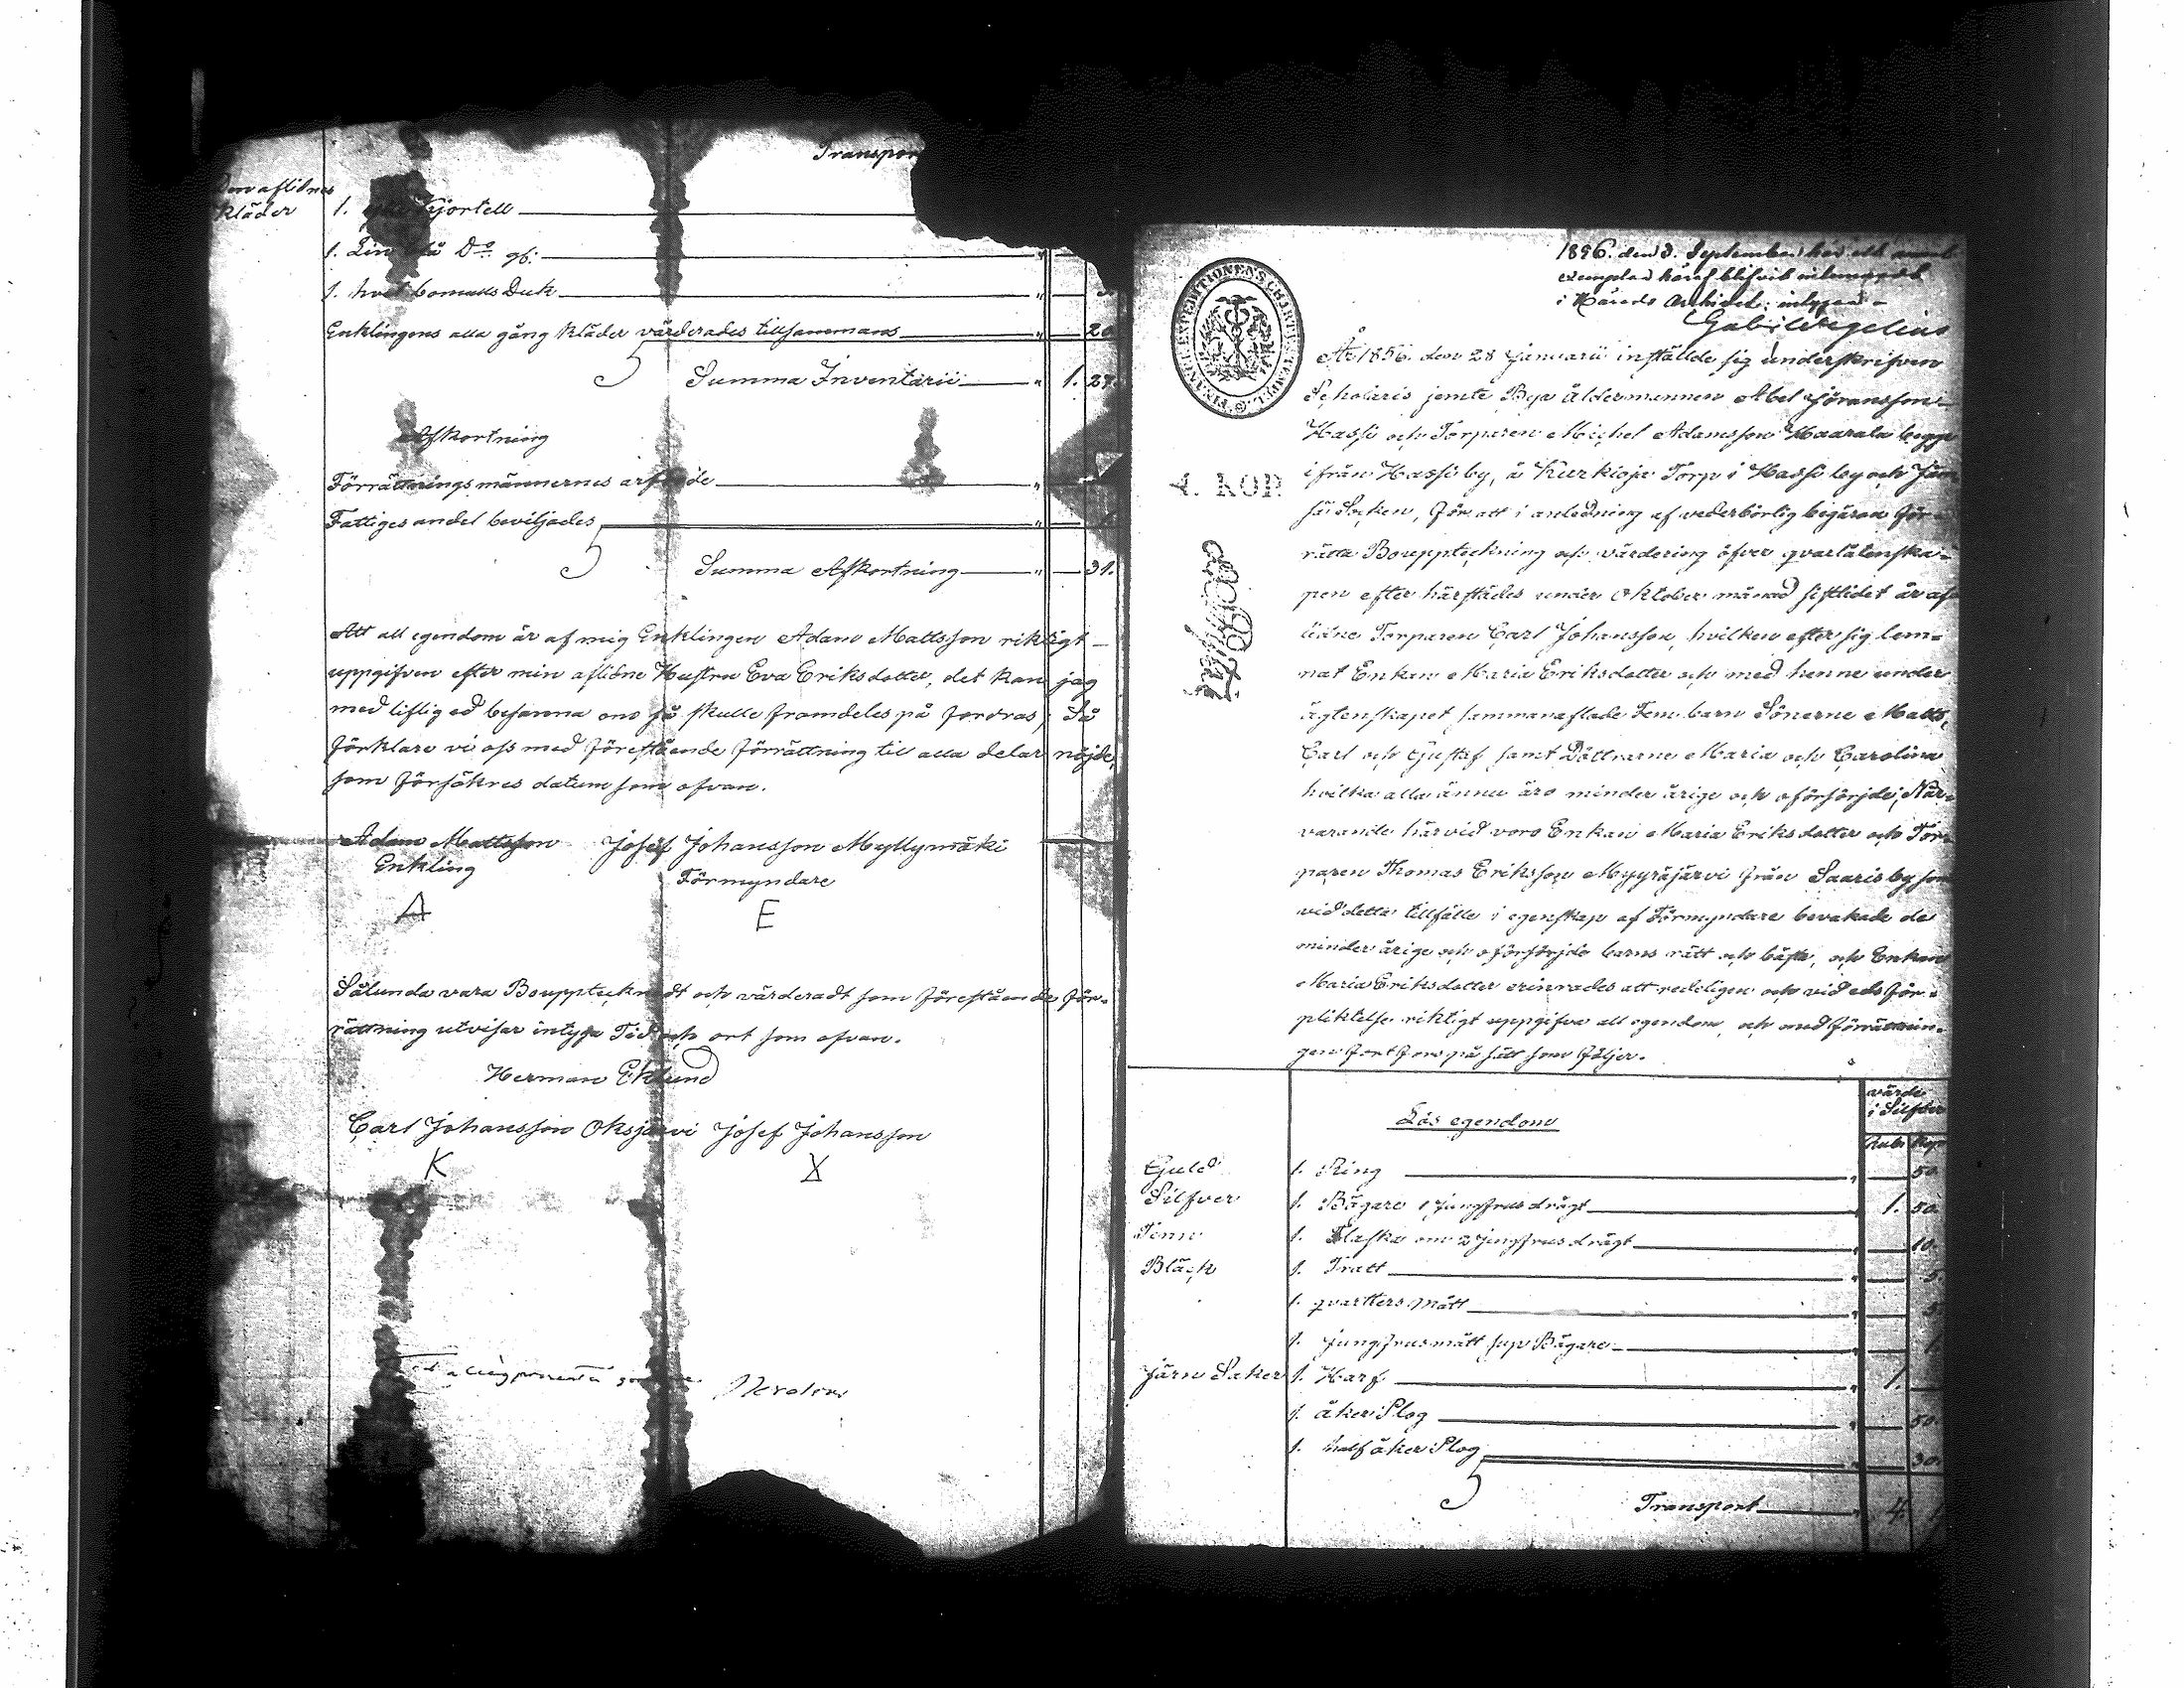 Transport
Den aflidnes
kläder
1. Kjortell
1. Lin blå Do gb:
1. hvit bomuls Duk
Enklingens alla gång kläder värderades tillsammans " 20
Summa Inventarii " 1. 27.
Afkortning
Förrättnings männernes arfvode "
Fattiges andel beviljades "
Summa Afkortning " 31.
Att all egendom är af mig Enklingen Adam Mattsson riktigt
uppgifven efter min aflidne Hustru Eva Eriksdotter, det kan jag
med liflig ed besanna om så skulle framdeles på fordras, Så
förklare vi oss med förestående förrättning til alla delar nöjde,
som försäkres datum som ofvan.
Adam Mattsson Josef Johansson Myllymäki
Enkling Förmyndare
A E
Sålunda vara Bouppteknadt och värderadt som föreståande för-
rättning utvisar intyga Tid och ort som ofvan.
Herman Eklund
Carl Johansson Oksjärvi Josef Johansson
K X
1856. den 3. September har ett
exemplar häraf blifvit inlemnadt
i Härads Arkivet; intygar
Gab: Wegelius
FINANCE EXPEDITIONENS CHARTÆ STEMPEL
År 1856. den 28 Januarii inställde sig underskrifven
Scholaris jemte Bya Åldermannen Abel Göransson
Hassi och Torparen Michel Adamsson Haarala begge
ifrån Hassi by, å Kurkioja Torp i Hassi by och Jäm
4. KOP.
sä Socken, för att i anledning af vederbörlig begäran för-
rätta Boupptekning och värdering öfver qvarlåtenska-
pen efter härstädes under Oktober månad sistlidet år af
lidne Torparen Carl Johansson, hvilken efter sig lem-
nat Enkan Maria Eriksdotter och med henne under
ägtenskapet sammanaflade Fem barn Sönerne Matts,
Carl och Gustaf samt Döttrarne Maria och Carolina
hvilka alla ännu äro minder årige och oförsörjde; När-
varande härvid voro Enkan Maria Eriksdotter och Tor-
paren Thomas Eriksson Myyräjärvi från Saaris by som
vid detta tillfälle i egenskap af Förmyndare bevakade de
minder årige och oförsörjde barns rätt och bästa, och Enkan
Maria Eriksdotter erinrades att redeligen och vid eds för-
pliktelse riktigt uppgifva all egendom, och med förrättnin-
gen fortfors på sätt som följer.
värde
i Silfver
Lös egendom
Rub: Kop
Guld 1. Ring " 50.
Silfver 1. Bägare 1 jungfrus drägt " 1. 50.
Tenn 1. Flaska om 2 jungfrus drägt " 10.
Bläck 1. Tratt " 5.
1. qvarters mått " 5.
1. jungfrus mått sup Bägare "
Järn Saker 1. Harf " 1.
1. åker Plog " 50.
1. half åker Plog " 30.
Transport " 4.